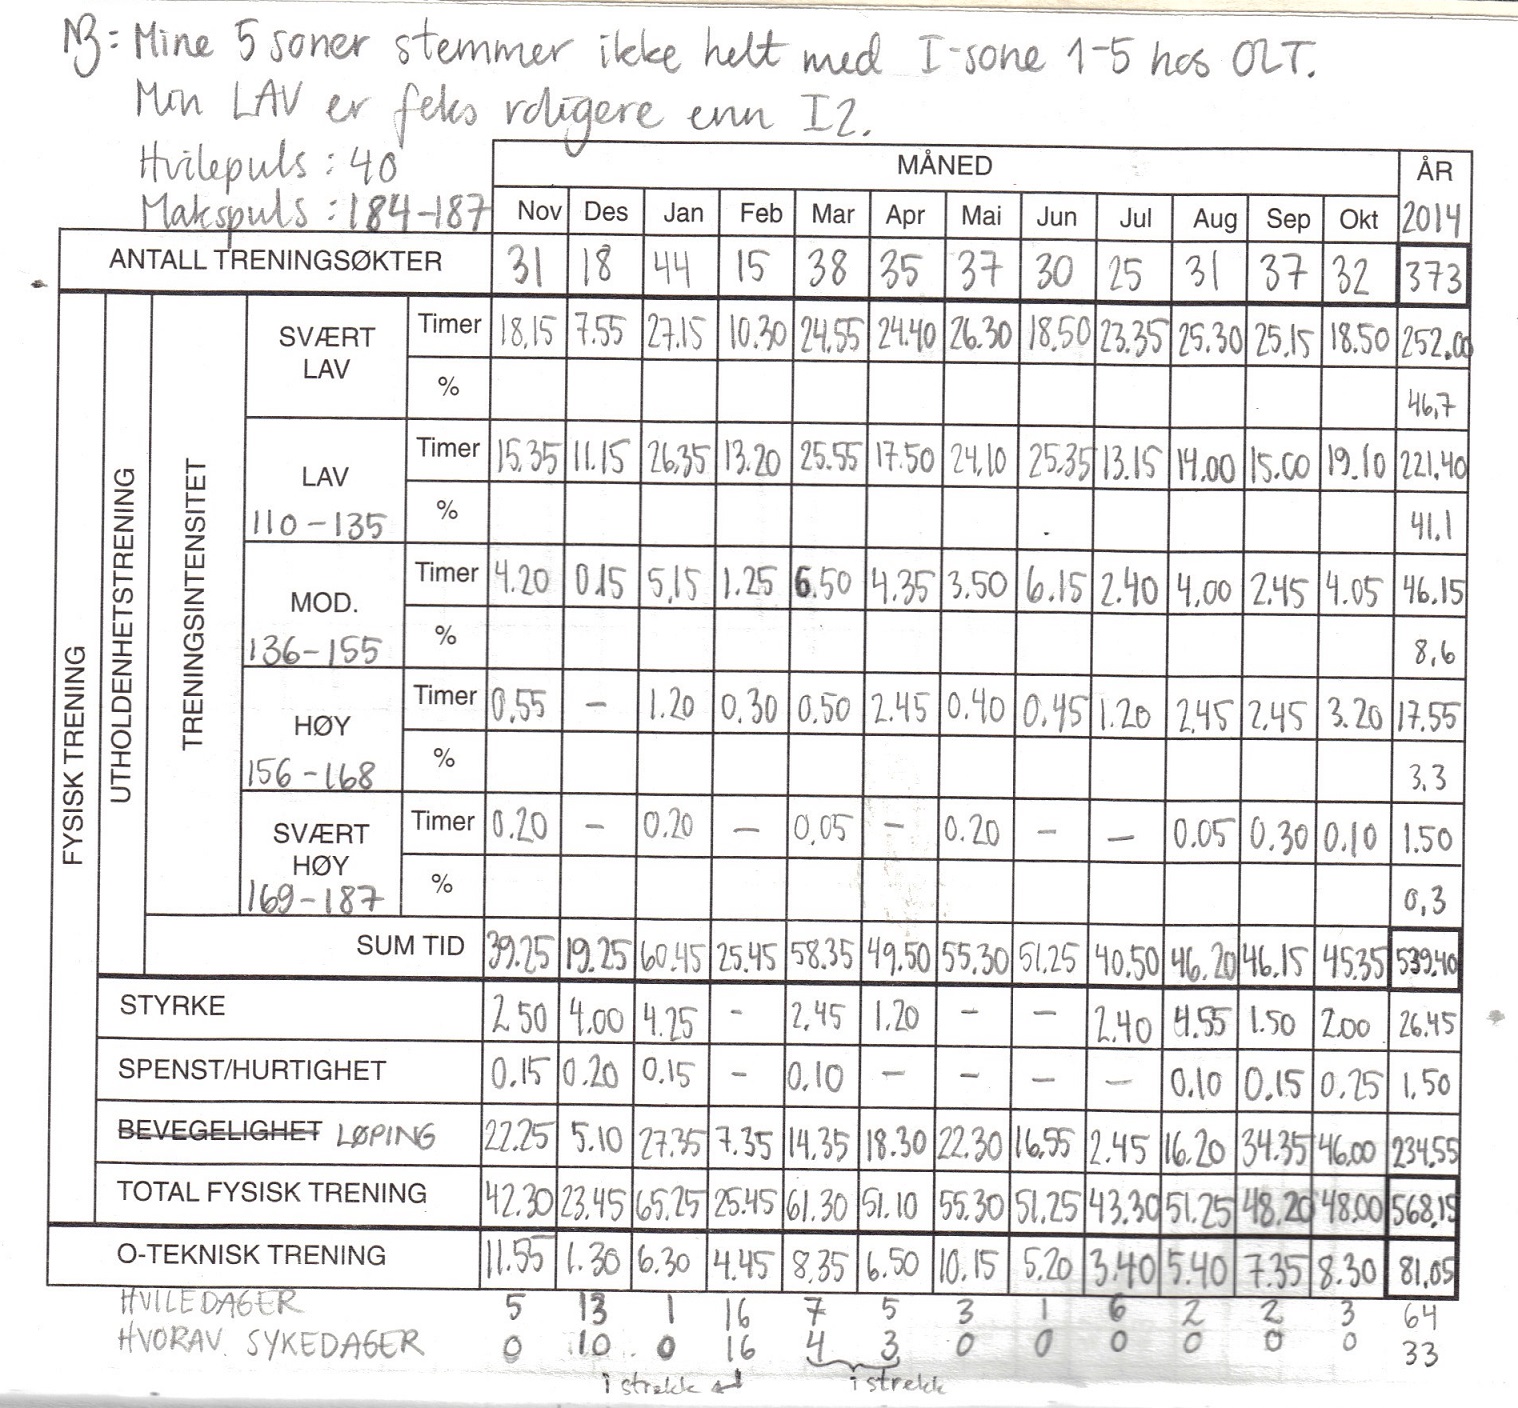 NB: Mine 5 soner stemmer ikke helt med I-sone 1-5 hos OLT.
Min LAV er feks roligere enn I2.
Hvilepuls: 40
Makspuls: 184-187
MÅNED ÅR
Nov Des Jan Feb Mar Apr Mai Jun Jul Aug Sep Okt 2014
ANTALL TRENINGSØKTER 31 18 44 15 38 35 37 30 25 31 37 32 373
FYSISK TRENING
UTHOLDENHETSTRENING
TRENINGSINTENSITET
SVÆRT LAV Timer 18.15 7.55 27.15 10.30 24.55 24.40 26.30 18.50 23.35 25.30 25.15 18.50 252.00
% 46,7
LAV Timer 15.35 11.15 26.35 13.20 25.55 17.50 24.10 25.35 13.15 14.00 15.00 19.10 221.40
110-135 % 41.1
MOD. Timer 4.20 0.15 5.15 1.25 6.50 4.35 3.50 6.15 2.40 4.00 2.45 4.05 46.15
136-155 % 8,6
HØY Timer 0.55 - 1.20 0.30 0.50 2.45 0.40 0.45 1.20 2.45 2.45 3.20 17.55
156-168 % 3.3
SVÆRT HØY Timer 0.20 - 0.20 - 0.05 - 0.20 - - 0.05 0.30 0.10 1.50
169-187 % 0,3
SUM TID 39.25 19.25 60.45 25.45 58.35 49.50 55.30 51.25 40.50 46.20 46.15 45.35 539.40
STYRKE 2.50 4.00 4.25 - 2.45 1.20 - - 2.40 4.55 1.50 2.00 26.45
SPENST/HURTIGHET 0.15 0.20 0.15 - 0.10 - - - - 0.10 0.15 0.25 1.50
BEVEGELIGHET LØPING 22.25 5.10 27.35 7.35 14.35 18.30 22.30 16.55 2.45 16.20 34.35 46.00 234.55
TOTAL FYSISK TRENING 42.30 23.45 65.25 25.45 61.30 51.10 55.30 51.25 43.30 51.25 48.20 48.00 568.15
O-TEKNISK TRENING 11.55 1.30 6.30 4.45 8.35 6.50 10.15 5.20 3.40 5.40 7.35 8.30 81.05
HVILEDAGER 5 13 1 16 7 5 3 1 6 2 2 3 64
HVORAV SYKEDAGER 0 10 0 16 4 3 0 0 0 0 0 0 33
i strekk i strekk